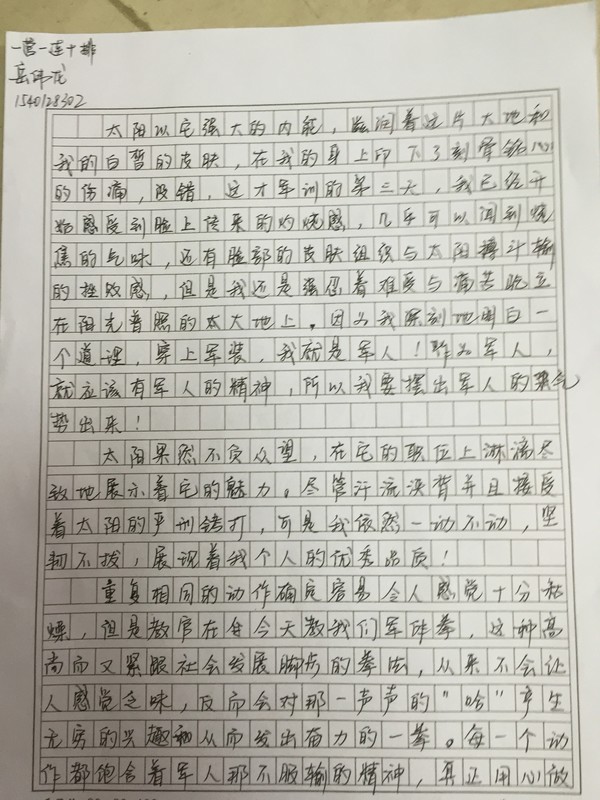 一营一连十排
岳炜龙
1540128302
太阳以它强大的内能，滋润着这片大地和
我的白皙的皮肤，在我的身上印下了刻骨铭心
的伤痛，没错，这才军训的第三天，我已经开
始感受到脸上传来的灼烧感，几乎可以闻到烧
焦的气味，还有脸部的皮肤组织与太阳搏斗输
的挫败感，但是我还是强忍着难受与痛苦屹立
在阳光普照的大地上。因为我深刻地明白一
个道理，穿上军装，我就是军人！作为军人，
就应该有军人的精神，所以我要摆出军人的气
势出来！
太阳果然不负众望，在它的职位上淋漓尽
致地展示着它的魅力。尽管汗流浃背并且接受
着太阳的严刑铐打，可是我依然一动不动，坚
韧不拔，展现着我个人的优秀品质！
重复相同的动作确定容易令人感觉十分枯
燥，但是教官在今天教我们军体拳，这种高
尚而又紧跟社会发展脚步的拳法，从来不会让
人感觉乏味，反而会对那一声声的"哈"产生
无穷的兴趣和从而发出奋力的一拳。每一个动
作都饱含着军人那不服输的精神，真正用心做